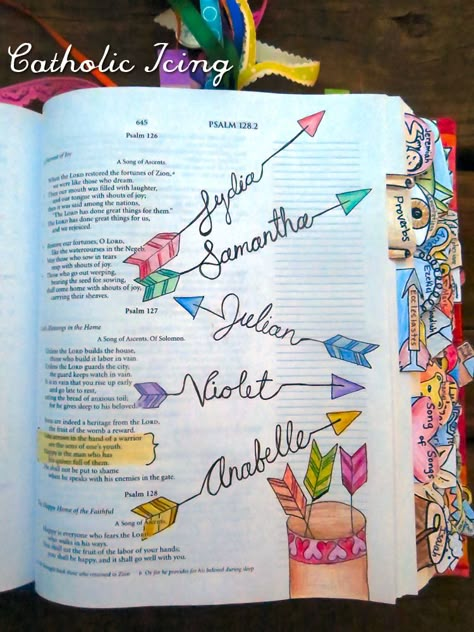 Catholic Icing
645
PSALM 128.2
Psalm 126
A Song of Ascents.
When the LORD restored the fortunes of Zion,
we were like those who dream.
Then our mouth was filled with laughter,
and our tongue with shouts of joy;
then it was said among the nations,
"The LORD has done great things for them."
The LORD has done great things for us,
and we rejoiced.
Restore our fortunes, O LORD,
like the watercourses in the Negeb.
May those who sow in tears
reap with shouts of joy.
Those who go out weeping,
bearing the seed for sowing,
shall come home with shouts of joy,
carrying their sheaves.
Psalm 127
in the Home
A Song of Ascents. Of Solomon.
Unless the LORD builds the house,
those who build it labor in vain.
Unless the LORD guards the city,
the guard keeps watch in vain.
It is in vain that you rise up early
and go late to rest,
eating the bread of anxious toil;
for he gives sleep to his beloved.
Sons are indeed a heritage from the LORD,
the fruit of the womb a reward.
Like arrows in the hand of a warrior
are the sons of one's youth.
Happy is the man who has
his quiver full of them.
He shall not be put to shame
when he speaks with his enemies in the gate.
Psalm 128
The Happy Home of the Faithful
A Song of Ascents.
Happy is everyone who fears the LORD,
who walks in his ways.
You shall eat the fruit of the labor of your hands;
you shall be happy, and it shall go well with you.
Or for he provides for his beloved during sleep
Lydia
Samantha
Julian
Violet
Anabelle
Jeremiah
Proverbs
Ezekiel
Ecclesiastes
Song
of
Songs
Isaiah